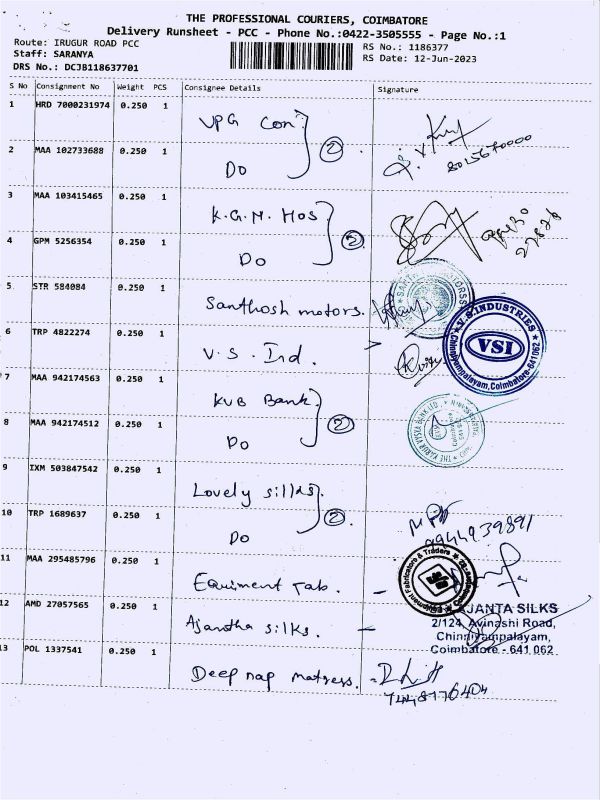 THE PROFESSIONAL COURIERS, COIMBATORE
Delivery Runsheet - PCC - Phone No.:0422-3505555 - Page No.:1
Route: IRUGUR ROAD PCC
Staff: SARANYA
DRS No.: DCJB118637701
RS No.: 1186377
RS Date: 12-Jun-2023
S No Consignment No Weight PCS Consignee Details Signature
1 HRD 7000231974 0.250 1 VPG Con.
2 MAA 102733688 0.250 1 Do ②
3 MAA 103415465 0.250 1 K.G.M. Hos
4 GPM 5256354 0.250 1 Do ②
5 STR 584084 0.250 1 Santhosh motors.
6 TRP 4822274 0.250 1 V.S. Ind.
V.S.INDUSTRIES
VSI
Chinniyampalayam, Coimbatore-641 062
7 MAA 942174563 0.250 1 KVB Bank.
8 MAA 942174512 0.250 1 Do ②
THE KARUR VYSYA BANK LTD.
9 IXM 503847542 0.250 1 Lovely sillks.
10 TRP 1689637 0.250 1 Do ②
9944939891
11 MAA 295485796 0.250 1 Equiment Fab. -
Equipment Fabricators & Traders
12 AMD 27057565 0.250 1 Ajantha silks. -
AJANTA SILKS
2/124, Avinashi Road,
Chinniyampalayam,
Coimbatore - 641 062
13 POL 1337541 0.250 1 Deep nap matress. -
7448776404